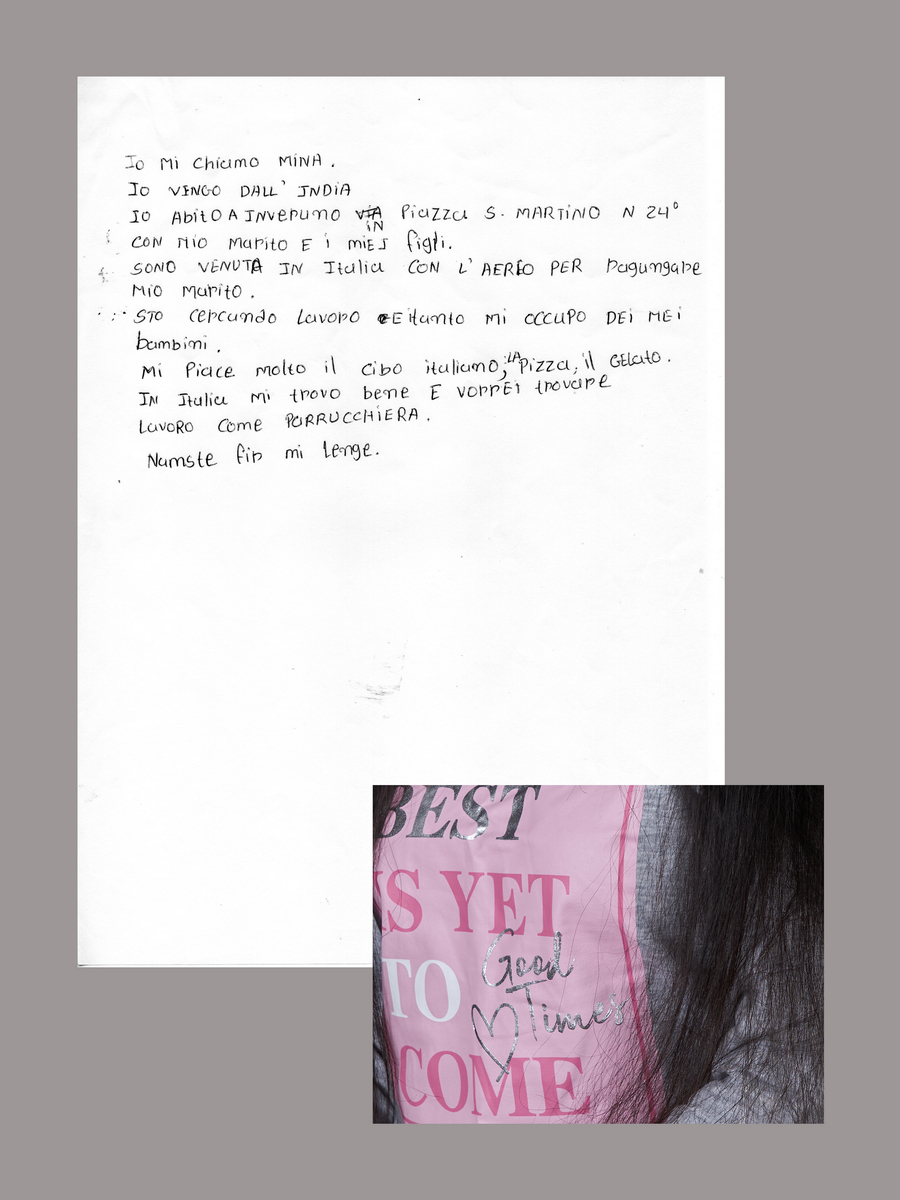 Io Mi chiamo MINA.
Io VINGO DALL' INDIA
IO AbitO A INVERUNO VIA IN PiaZZa S. MARTINO N 24°
CON MIO MaRito E i miEI figli.
SONO VENUTA IN Italia CON L' AERÉO PER Ragungare
MIO MaRito.
STO CeRcando LavoRO E itanto Mi OCCUPO DEi MEi
bambini.
Mi Piace molto il cibo italiano, LA Pizza, il GELato.
IN Italia mi trovo bene E VORREI trovaRE
LavoRO Come PaRRUCCHIERA.
Namste fir mi lenge.
BEST
IS YET
TO
COME
Good
Times